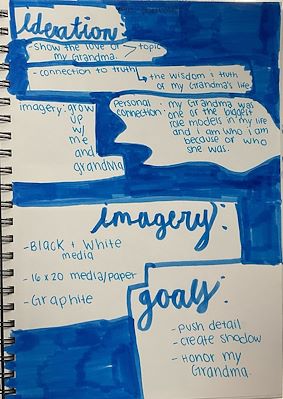 ideation
- show the love of > topic
my Grandma.
- connection to truth
↳ the wisdom & truth
of my Grandma's life
imagery: grow
up
w/
me
and
grandma
Personal : my Grandma was
connection one of the biggest
role models in my life
and i am who i am
because of who
she was.
imagery:
- Black + White
media
- 16 x 20 media/paper
- Graphite
goals:
- push detail
- create shadow
- Honor my
Grandma.